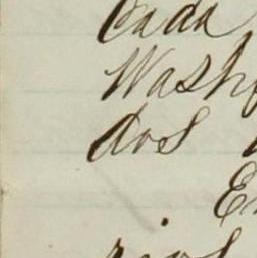 Cada
Wash
dos
E
rios